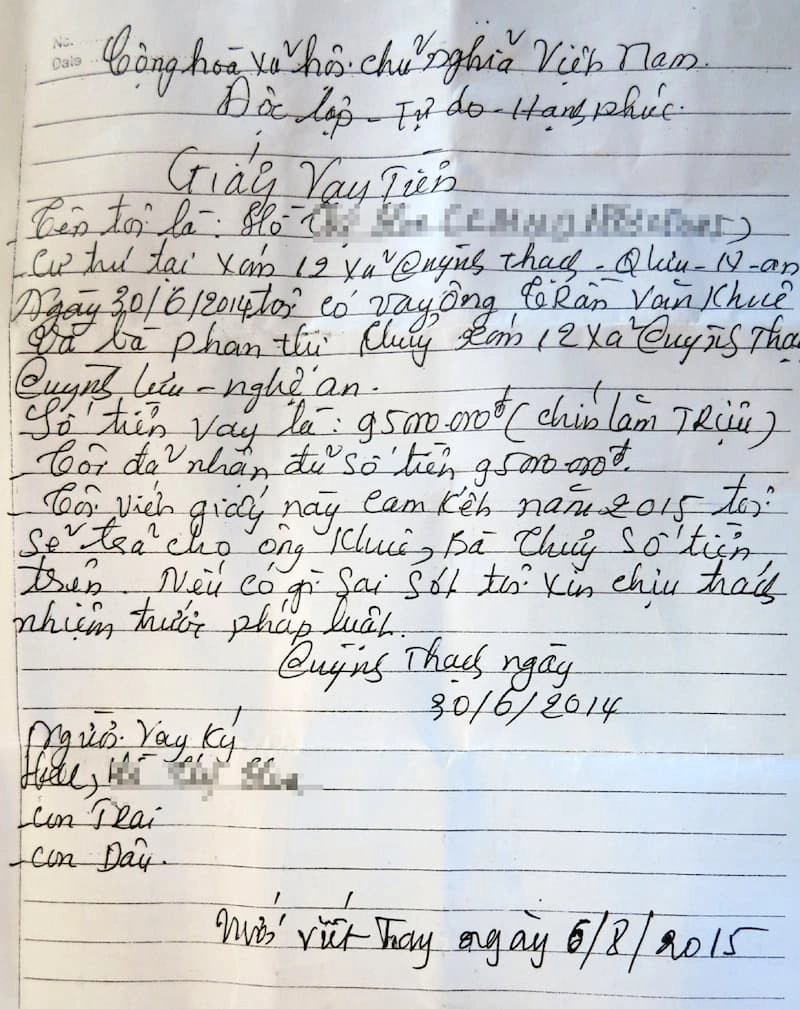 No.
Date
Cộng hoà xã hội chủ nghĩa Việt Nam.
Độc lập - Tự do - Hạnh phúc.
Giấy Vay Tiền
- Tên tôi là: Hồ
- Cư trú tại xóm 12 xã Quỳnh Thạch - Q lưu - N - an
Ngày 30/6/2014 tôi có vay ông Trần Văn Khuê
và bà phan thị thuỷ xóm 12 xã Quỳnh Thạ
Quỳnh lưu - nghệ an.
Số tiền vay là: 95000.000đ (chín lăm TRiệu)
- Tôi đã nhận đủ số tiền 95000.000đ.
- Tôi viết giấy này cam kết năm 2015 tôi
sẽ trả cho ông Khuê, Bà Thuỷ số tiền
trên. Nếu có gì sai sót tôi xin chịu trách
nhiệm trước pháp luật.
Quỳnh Thạch ngày
30/6/2014
Người vay ký
- con Trai
- con Dâu.
mới viết thay ngày 6/8/2015